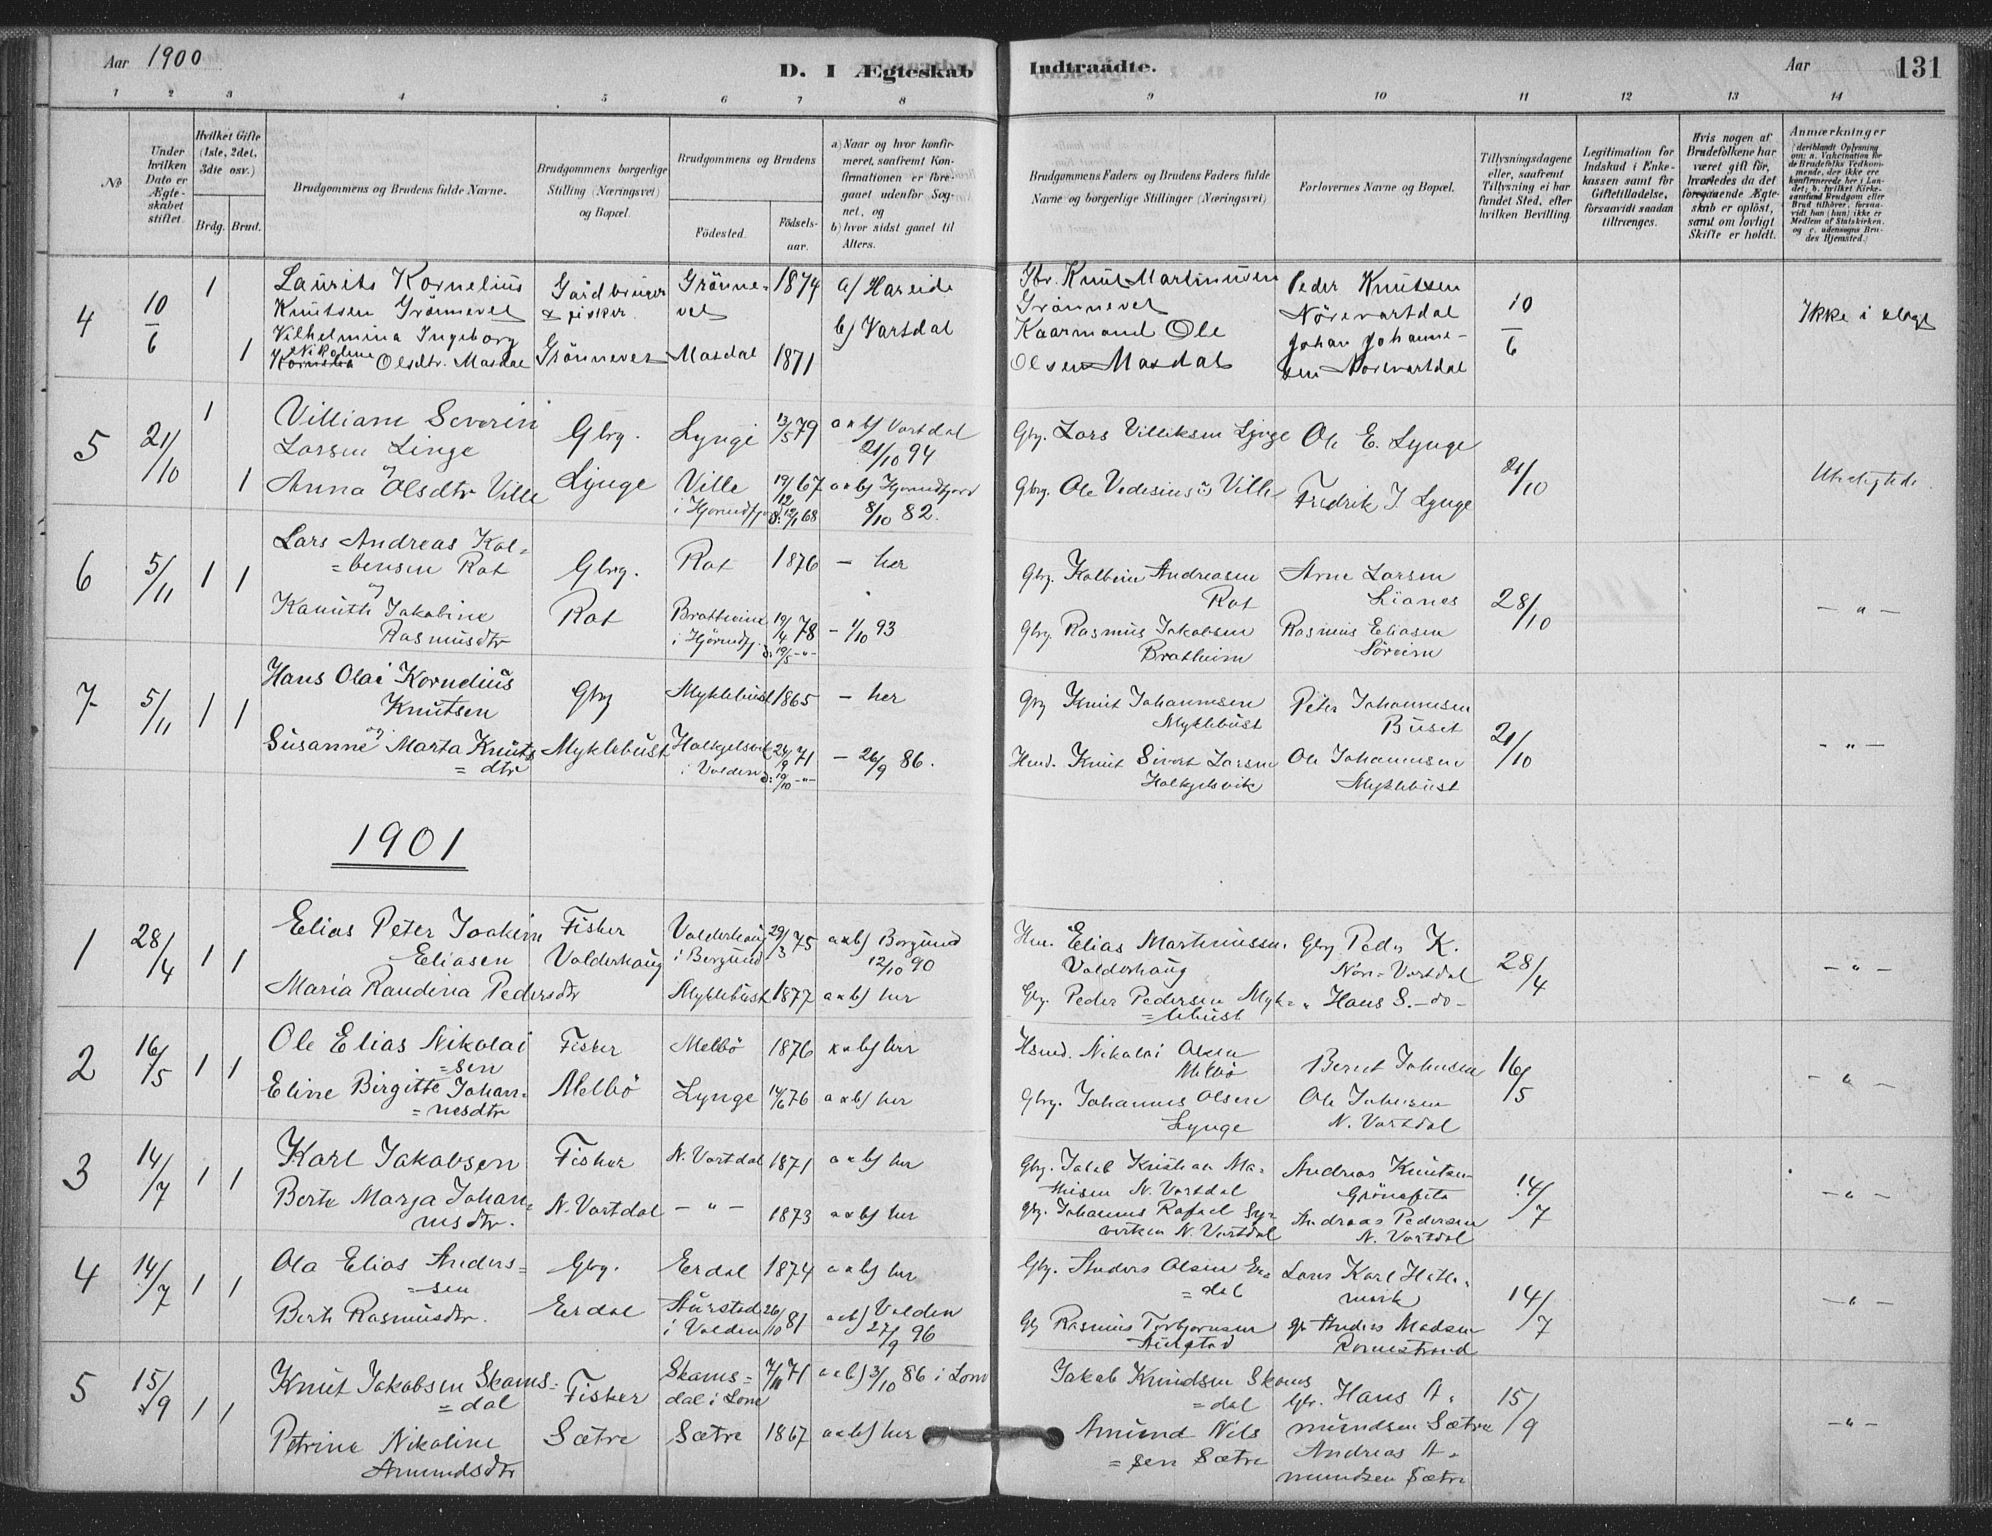 Aar 1900
D. I Ægteskab Indtraadte.
Aar 131
1 2 3 4 5 6 7 8 9 10 11 12 13 14
No
Under hvilken Dato er Ægteskabet stiftet.
Hvilket Gifte (1ste, 2det, 3die osv.)
Brdg. Brud.
Brudgommens og Brudens fulde Navne.
Brudgommens borgerlige Stilling (Næringsvei) og Bopæl.
Brudgommens og Brudens
Födested.
Födsels-aar.
a) Naar og hvor konfirmeret, saafremt Konfirmationen er foregaaet udenfor Sognet, og
b) hvor sidst gaaet til Alters.
Brudgommens Faders og Brudens Faders fulde Navne og borgerlige Stillinger (Næringsvei)
Forlovernes Navne og Bopæl.
Tillysningsdagene eller, saafremt Tillysning ei har fundet Sted, efter hvilken Bevilling.
Legitimation for Indskud i Enkekassen samt for Giftetilladelse, forsaavidt saadan tiltrænges.
Hvis nogen af Brudefolkene har været gift før, hvorledes da det foregaaende Ægteskab er oplöst, samt om lovligt Skifte er holdt.
Anmærkninger (deriblandt Oplysning om: a. Vakcination for de Brudefolks Vedkommende, der ikke ere konfirmerede her i Landet; b. hvilket Kirkesamfund Brudgom eller Brud tilhører, forsaavidt han (hun) ikke er Medlem af Statskirken, og c. udensogns Brudes Hjemsted.)
4 10/6 1 Laurits Kornelius Knutsen Grönnevet Gårdbruger & fisker Grönnevet 1874 a) Hareide b) Vartdal Gbr. Knut Martinusen Grönnevet Peder Knutsen Nörevartdal 10/6 Ikke i slægt
1 Vilhelmina Ingeborg Nikoline Olsdtr. Masdal Grönnevet Masdal 1871 Kaarmand Ole Olsen Masdal Johan Johannesen Nörevartdal
5 21/10 1 Villiam Severin Larsen Linge Gbrg. Lynge 13/5 79 a & b) Vartdal 21/10 94 Gbg. Lars Villiksen Lynge Ole E. Lynge 21/10 Ubeslægtede
og
1 Anna Olsdtr Ville Lynge Ville i Hjörundfj. 19/12 67 d: 12/1 68 a & b) Hjørundfjord 8/10 82. Gbrg. Ole Vedesius Ville Fredrik J. Lynge
6 5/11 1 1 Lars Andreas Kol=bensen Rot Gbrg. Rot 1876 — her Gbrg. Kolbein Andreasen Rot Arne Larsen Lianes 28/10 — " —
og
Kanuth Jakobine Rasmusdtr Rot Brattheim i Hjörundfj. 19/4 78 d: 19/5 -"- — 1/10 93 Gbrg. Rasmus Jakobsen Bratheim Rasmus Eliasen Sörheim
7 5/11 1 1 Hans Olai Kornelius Knutsen Gbrg Myklebust 1865 — her Gbrg Knut Johannesen Myklebust Peter Johannesen Buset 21/10 — " —
og
Susanne Marta Knuts=dtr Myklebust Halkjelsvik i Volden 24/9 71 d: 19/10 -"- — 26/9 86. Hmd. Knut Sivert Larsen Halkjelsvik Ole Johannesen Myklebust
1901
1 28/4 1 1 Elias Peter Joakim Eliasen Fisker Valderhaug Valderhaug i Borgund 29/3 75 a & b) Borgund 12/10 90 Hm. Elias Martinussen Valderhaug Gbrg Peder K. Nörr-Vartdal 28/4 — " —
Maria Randina Pedersdtr Myklebust 1877 a & b) her Gbrg. Peder Pedersen Myk=lebust " Hans S. -do-
2 16/5 1 1 Ole Elias Nikolai=sen Fisker Melbö 1876 a & b) her Hsmd. Nikolai Olsen Melbö Bernt Johnsen 16/5 — " —
Eline Birgitte Johan=nesdtr Melbö Lynge 14/6 76 a & b) her Gbrg. Johannes Olsen Lynge Ole Johnsen N. Vartdal
3 14/7 1 1 Karl Jakobsen Fisker N. Vartdal 1871 a & b) her Gbg. Jakob Kristian Ma=thisen N. Vartdal Andreas Knutsen Grönefeta 14/7 — " —
Berte Marja Johan=nesdtr. N. Vartdal — " — 1873 a & b) her Gbg. Johannes Rafael Sy=vertsen N. Vartdal Andreas Pedersen N. Vartdal
4 14/7 1 1 Ola Elias Anders=sen Gbg. Erdal 1874 a & b) her Gbg. Anders Olsen Er=dal Lars Karl Hatle=mark 14/7 — " —
Berte Rasmusdtr. Erdal Aurstad i Volden 26/10 81 a & b) Volden 27/9 96 Gbg Rasmus Torbjörnsen Aurstad gb Anders Madsen Romestrand
5 15/9 1 1 Knut Jakobsen Skams=dal Fisker Skams=dal i Lom 7/11 71 a & b) 3/10 86 i Lom Jakob Knudsen Skams=dal Gbr. Hans A=mundsen Sætre 15/9 — " —
Petrine Nikoline Amundsdtr Sætre Sætre 1867 a & b) her Amund Nils=sen Sætre Andreas A=mundsen Sætre